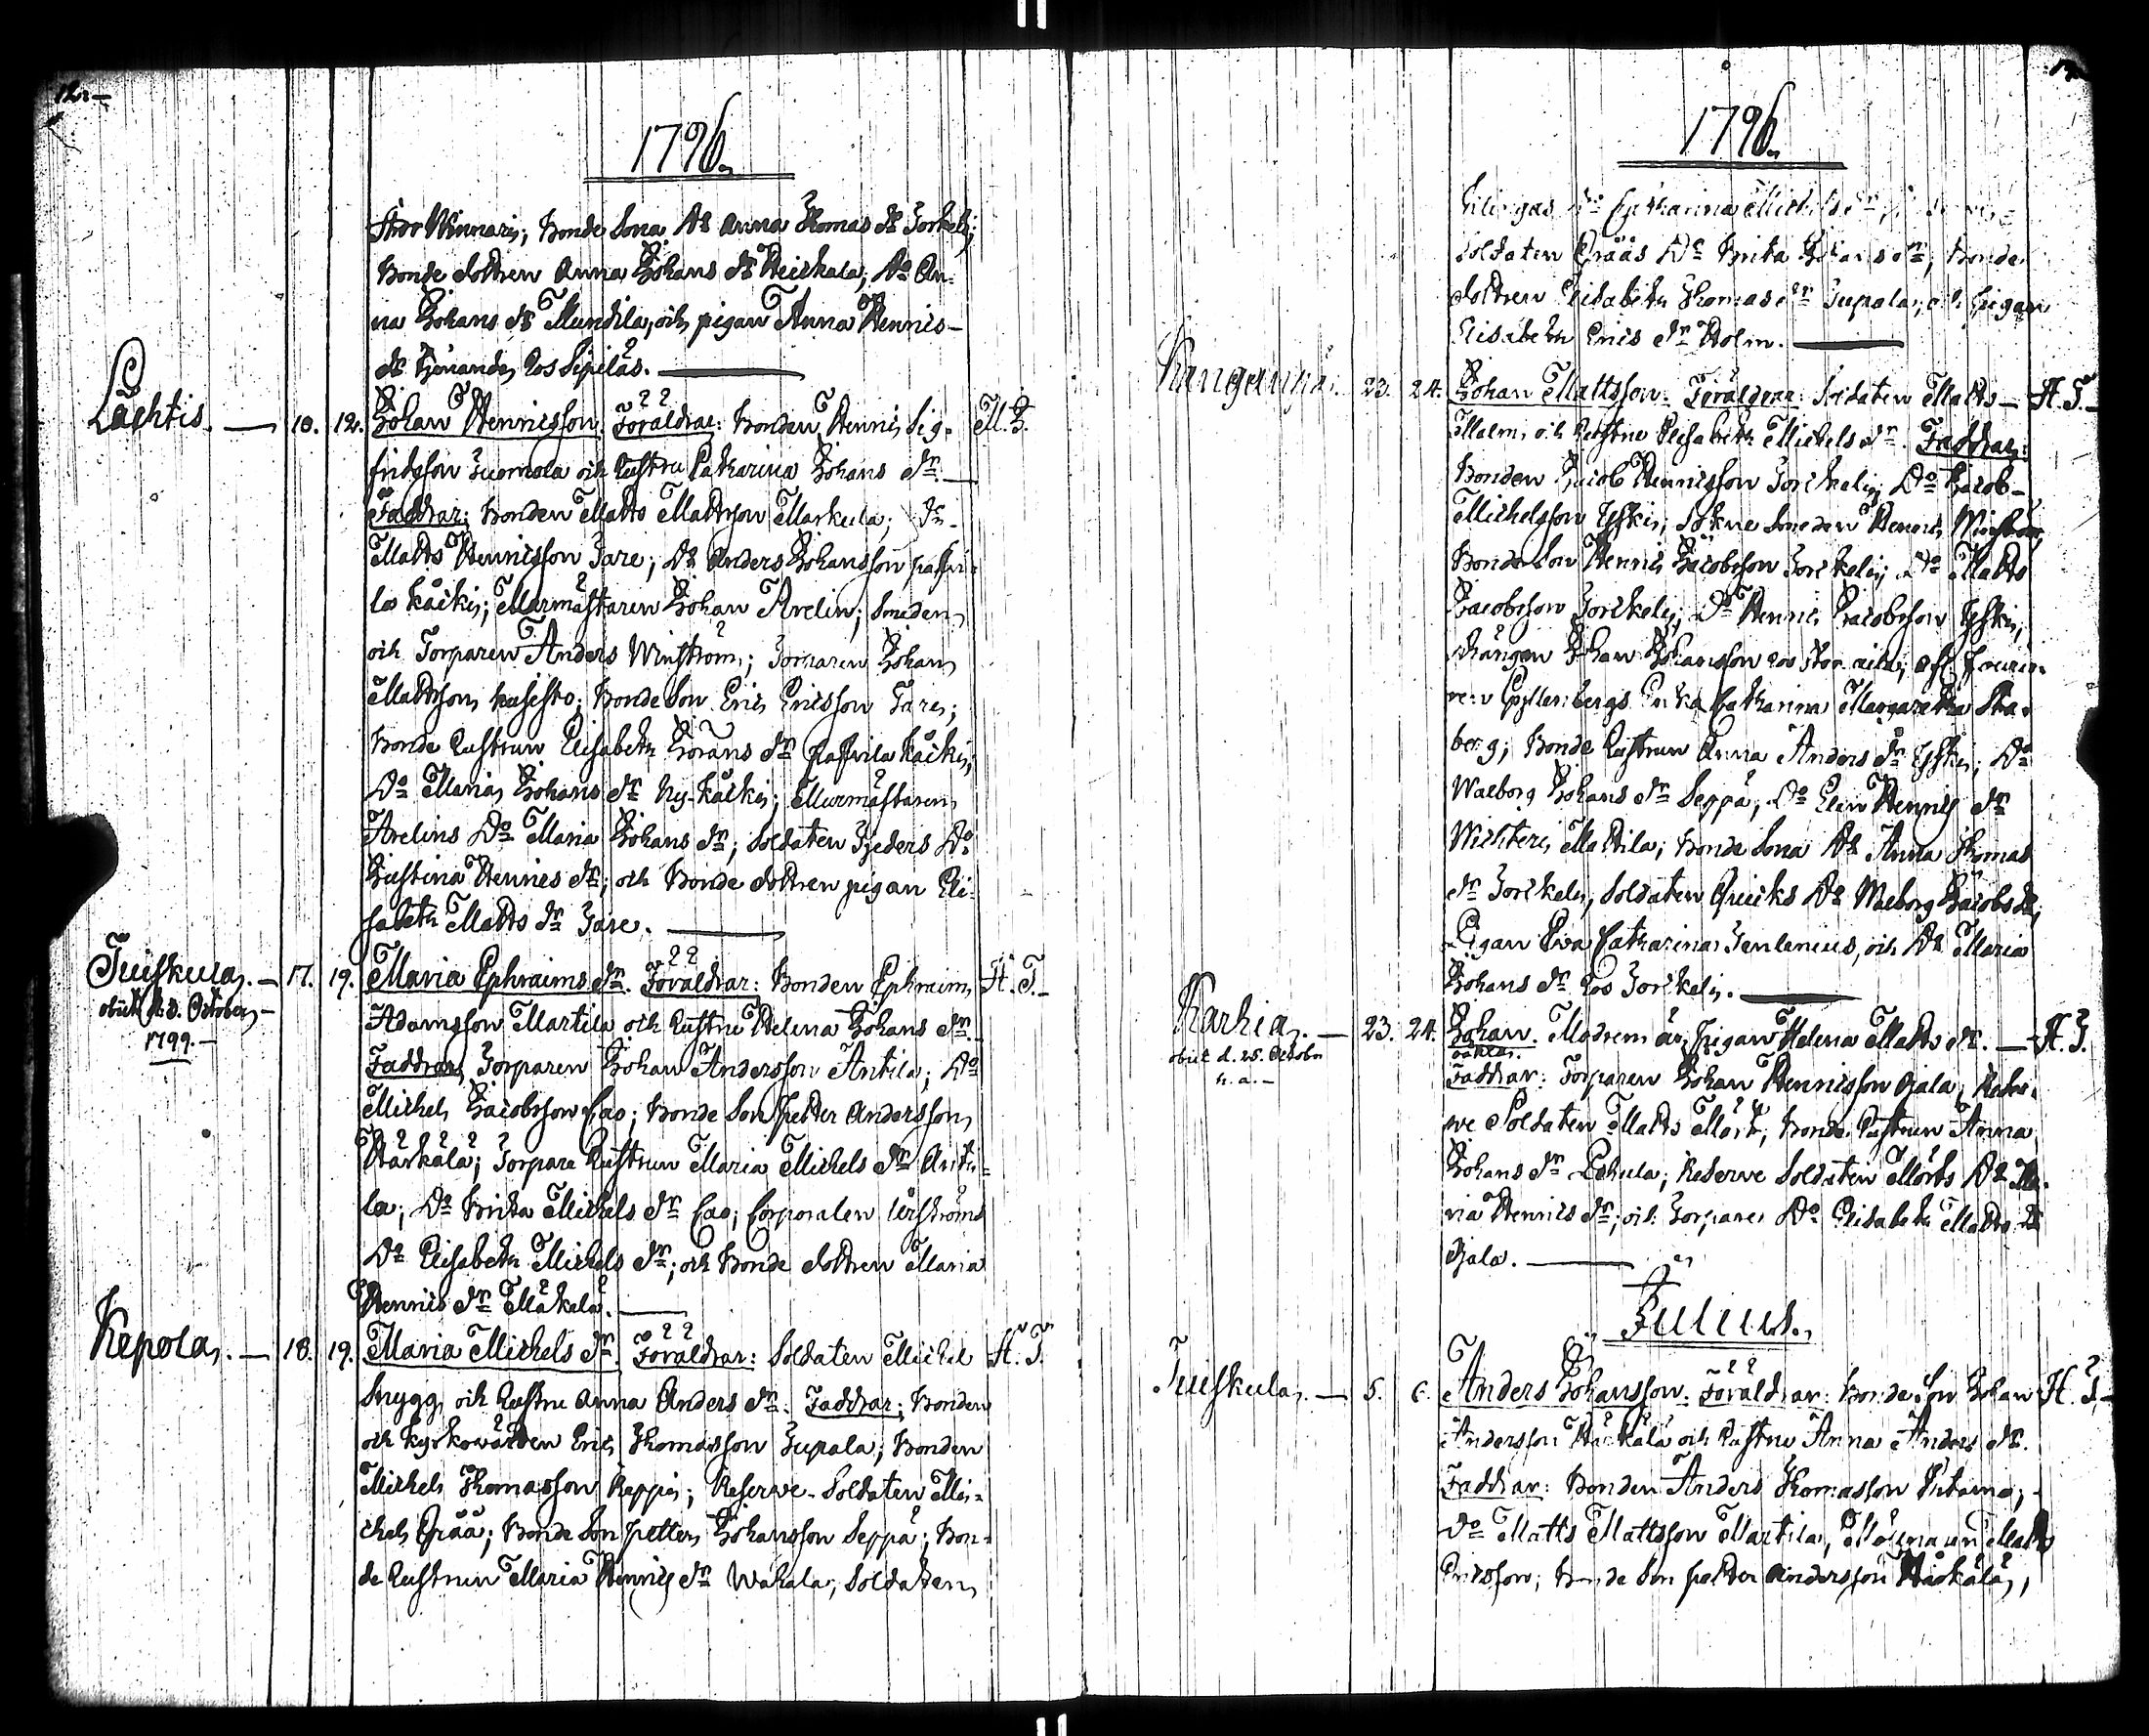 12.
1796.
Hinnari; Bonde Sona Do Anna Thomas dr Jorkeli;
Bonde dottren Anna Johans dr Heickala; Do An-
na Johans dr Mundila, och pigan Anna Henrics
dr tjenande hos Sipilä.
Lächtis. 10. 12. Johan Henricsson. Föräldrar: Bonden Henric Sig- M. J.
fridsson Juomola och Hustru Catharina Johans dr.
Faddrar: Bonden Matts Mattsson Markula; Do
Matts Henricsson Jare; Do Anders Johansson
Käckis; Murmästaren Johan Avelin; Smeden
och Torparen Anders Winström; Torparen Johan
Mattsson Kusisto; Bonde Son Eric Ericsson Jare;
Bonde Hustrun Elisabeth Görans dr Pafvila Käckis;
Do Maria Johans dr Ny-Käckis; Murmästaren
Avelins Do Maria Johans dr; Soldaten Do
Justina Henrics dr; och Bonde dottren pigan Eli-
sabeth Matts dr Jare.
Tuiskula. 17. 19. Maria Ephraims dr. Föräldrar: Bonden Ephraim H. T.
obiit d. 3. October
1799.
Adamsson Martila och Hustru Helena Johans dr.
Faddrar: Torparen Johan Andersson Antila; Do
Michel Jacobsson Cao; Bonde Son Petter Andersson
Härkälä; Torpare Hustrun Maria Michels dr Anti-
la; Do Brita Michels dr Cao; Corporalen
Do Elisabeth Michels dr; och Bonde dottren Maria
Henrics dr Mäkälä.
Kepola. 18. 19. Maria Michels dr. Föräldrar: Soldaten Michel H. T.
Snygg och Hustru Anna Anders dr. Faddrar: Bonden
och Kyrkowärden Eric Thomasson Jupala; Bonden
Michel Thomasson Reppi; Reserve-Soldaten Mi-
chel Gråå; Bonde Son Petter Johansson Seppä; Bon-
de Hustrun Maria Henrics dr Wahala; Soldaten
1796.
Do Catharina Michels dr
Soldaten Gråås Do Brita Johans dr; Bonde
dottren Elisabeth Thomas dr Jupala; och pigan
Elisabeth Erics dr Holm.
Kanganpä. 23. 24. Johan Mattsson. Föräldrar: Soldaten Matts H. T.
Malm och Hustru Elisabeth Michels dr. Faddrar:
Bonden Jacob Henricsson Jorkeli; Do Jacob
Michelsson Eskis; Sokne Smeden Henric
Bonde Son Henric Jacobsson Jorkeli; Do Matts
Jacobsson Jorkeli; Do Henric Jacobsson Eskis;
drängen Johan Johansson hos
Gyllenbergs Enka Catharina Margaretha
berg; Bonde Hustrun Anna Anders dr Eskis; Do
Walborg Johans dr Seppä; Do Elin Henrics dr
Wichteri Mattila; Bonde Sona Do Anna Thomas
dr Jorkeli; Soldaten Qwicks Do Walborg Jacobs dr;
Pigan Eva Catharina Jenlenius, och Do Maria
Johans dr hos Jorkeli.
Karhia. 23. 24. Johan. Modren är pigan Helena Matts dr. H. T.
obiit d. 25. October
h. a.
oäkta.
Faddrar: Torparen Johan Henricsson Ojala; Reser-
we Soldaten Matts Mört; Bonde Hustrun Anna
Johans dr Lekula; Reserve Soldaten Mörts Do Ma-
ria Henrics dr; och Torpare Do Elisabeth Matts dr
Ojala.
Julius.
Tuiskula. 5. 6. Anders Johansson. Föräldrar: Bonde Son Johan H. T.
Andersson Härkälä och Hustru Anna Anders dr.
Faddrar: Bonden Anders Thomasson
Do Matts Mattsson Martila; Matts
Ericsson; Bonde Son Petter Andersson Härkälä;